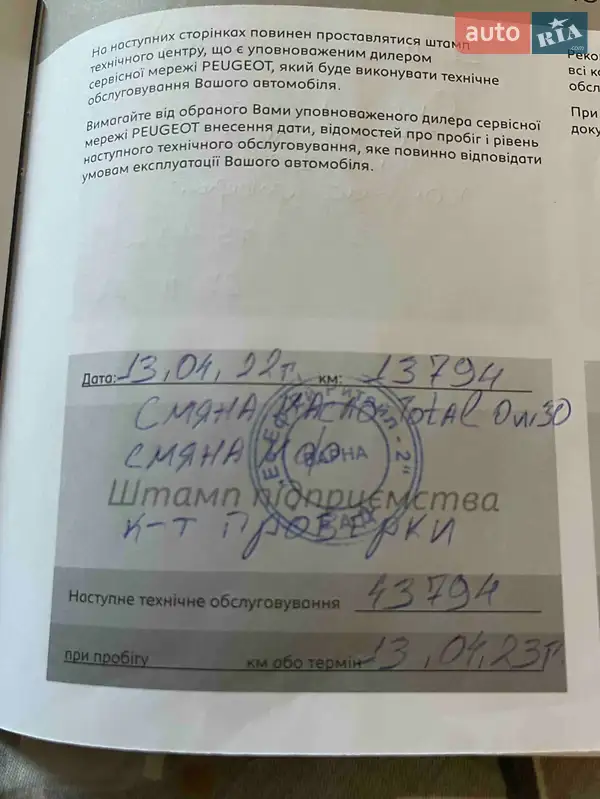 auto RIA.com
На наступних сторінках повинен проставлятися штамп
технічного центру, що є уповноваженим дилером
сервісної мережі PEUGEOT, який буде виконувати технічне
обслуговування Вашого автомобіля.
Вимагайте від обраного Вами уповноваженого дилера сервісної
мережі PEUGEOT внесення дати, відомостей про пробіг і рівень
наступного технічного обслуговування, яке повинно відповідати
умовам експлуатації Вашого автомобіля.
Реко
всі к
обсл
При
доку
Дата: 13,04,22г. км: 13794
СМЯНА МАСЛО Total 0W30
СМЯНА
ВАРНА
Штамп підприємства
К-Т ПРОВЕРКИ
Наступне технічне обслуговування 43794
при пробігу км або термін 13,04,23г.